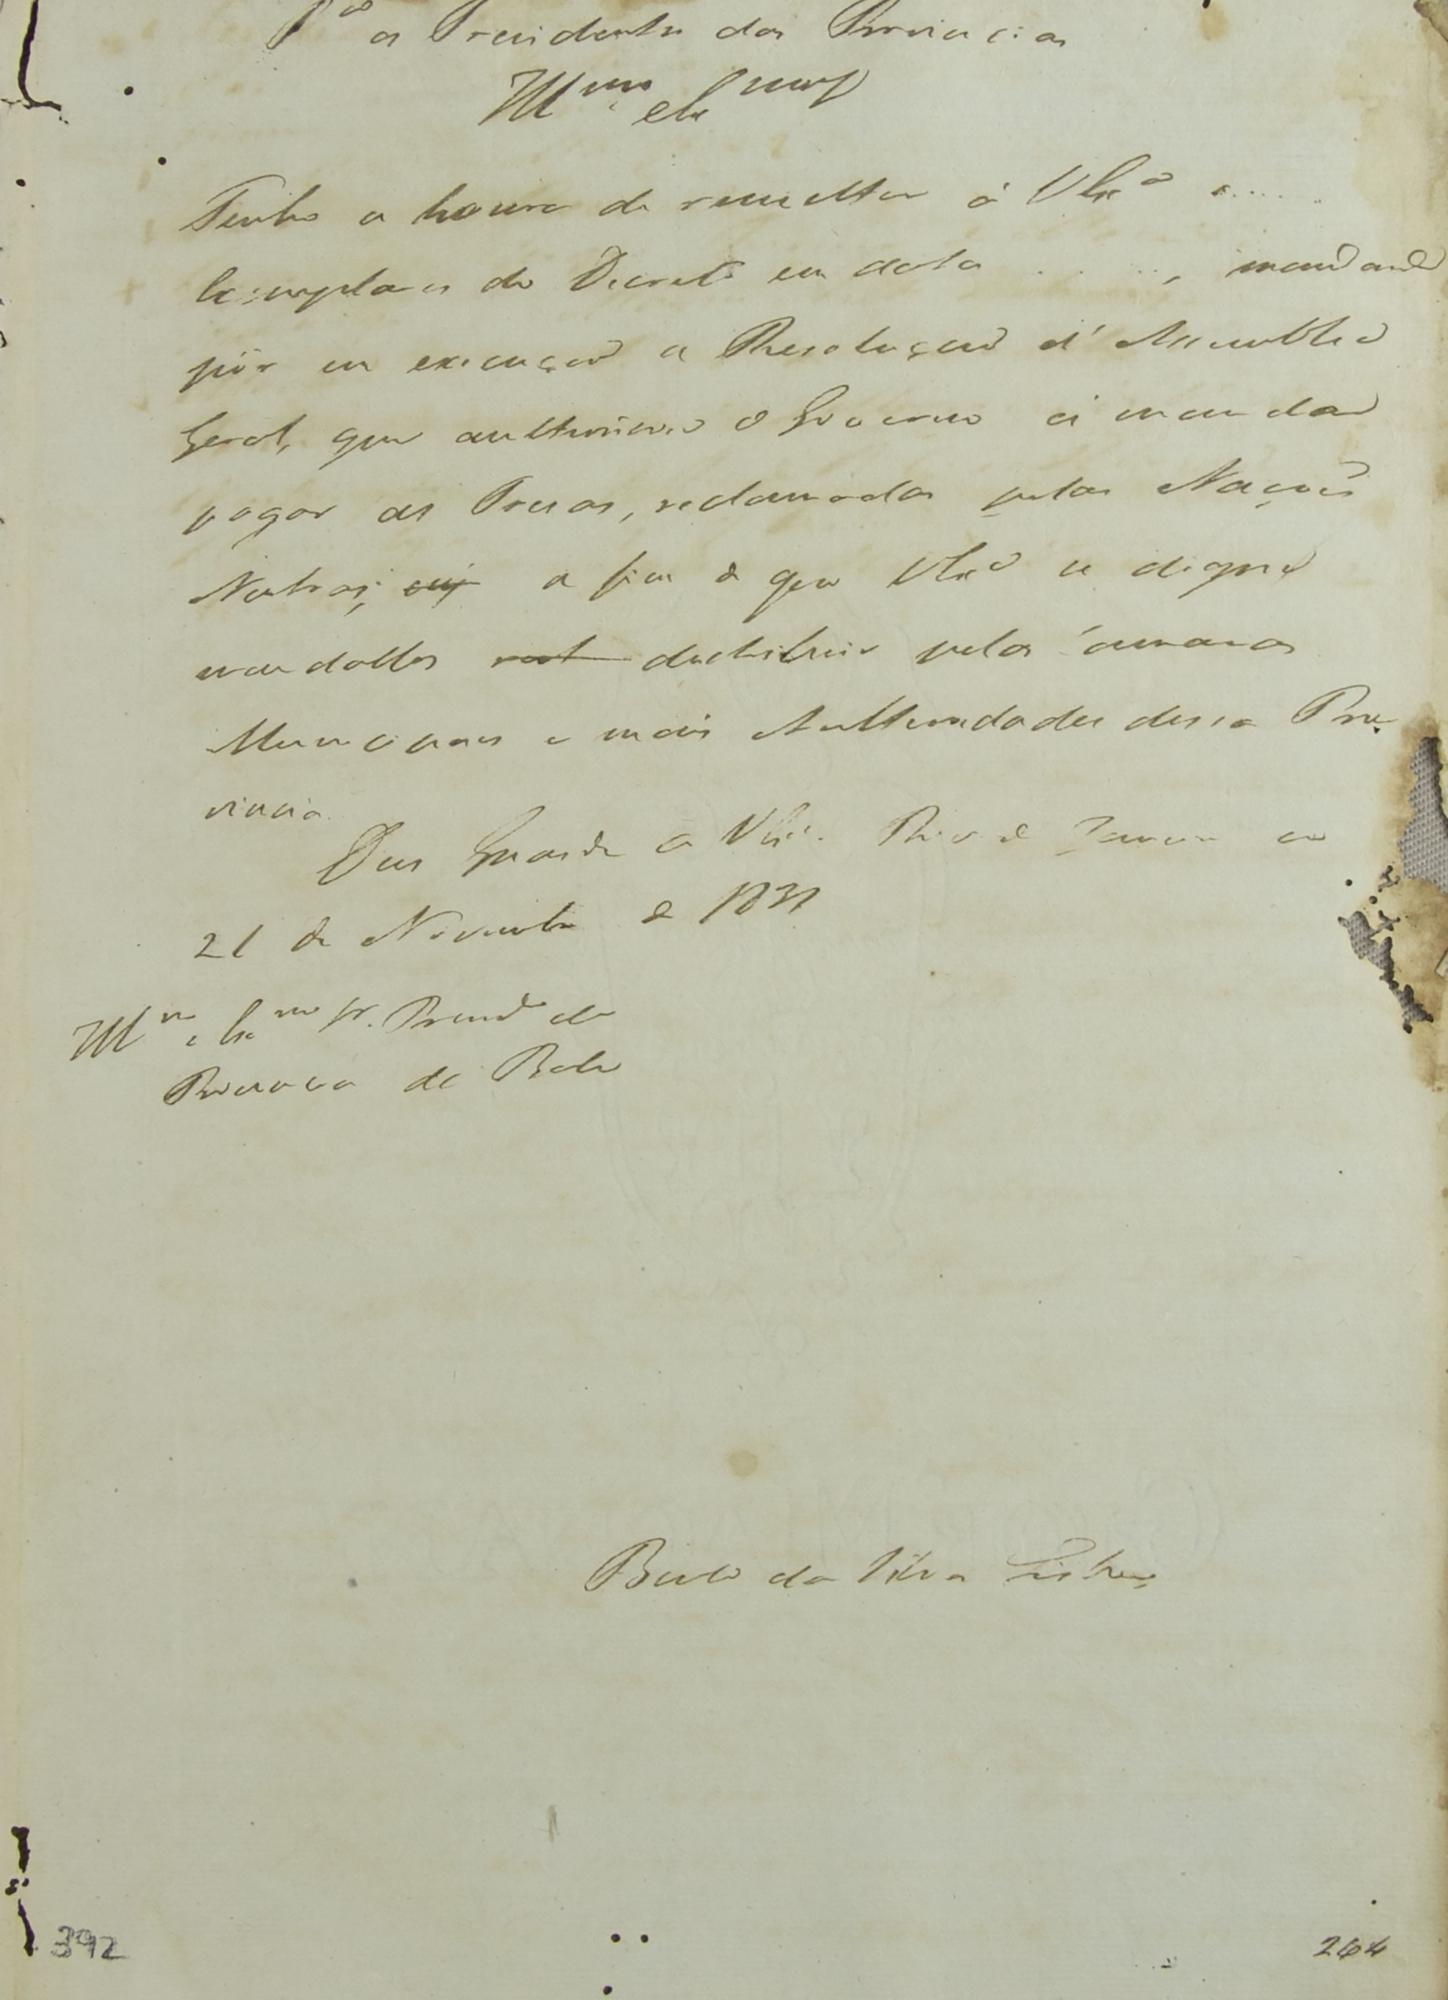 P.ª os Presidentes das Provincias
Ill.mo e Ex.mo Snr
Tenho a honra de remetter á V Ex.ª .....
Exemplares do Decreto em data ....., mandando
pôr em execução a Resolução d'Assemblea
Geral, que authorisou o Governo á mandar
pagar as Presas, reclamadas pelas Nações
Neutras, a fim de que V Ex.ª se digne
mandallos destribuir pelas Camaras
Municipaes e mais Authoridades dessa Pro-
vincia.
Deos Guarde a V Ex.ª Rio de Janeiro em
21 de Novembro de 1831
Ill.mo e Ex.mo Sr. Presid.e da
Provincia da Bahia
Bento da Silva Lisboa
392
264